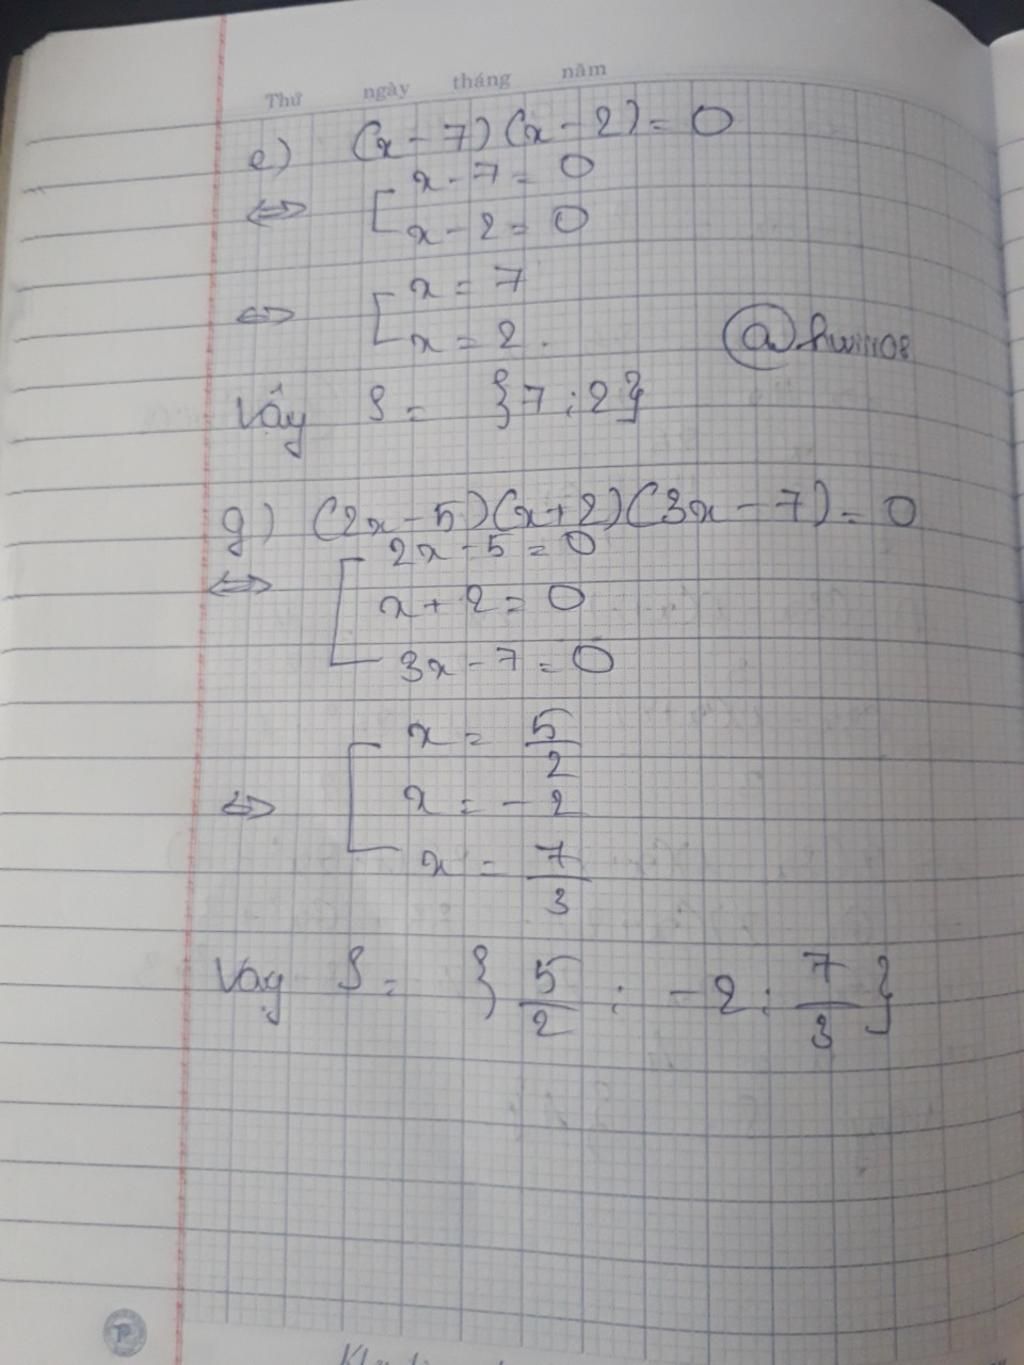 Thứ ngày tháng năm
e) (x - 7)(x - 2) = 0
⇔ [ x - 7 = 0
x - 2 = 0
⇔ [ x = 7
x = 2.
Vậy S = {7 ; 2}
g) (2x - 5)(x + 2)(3x - 7) = 0
⇔ [ 2x - 5 = 0
x + 2 = 0
3x - 7 = 0
⇔ [ x = 5/2
x = -2
x = 7/3
Vay S = { 5/2 ; -2 ; 7/3 }